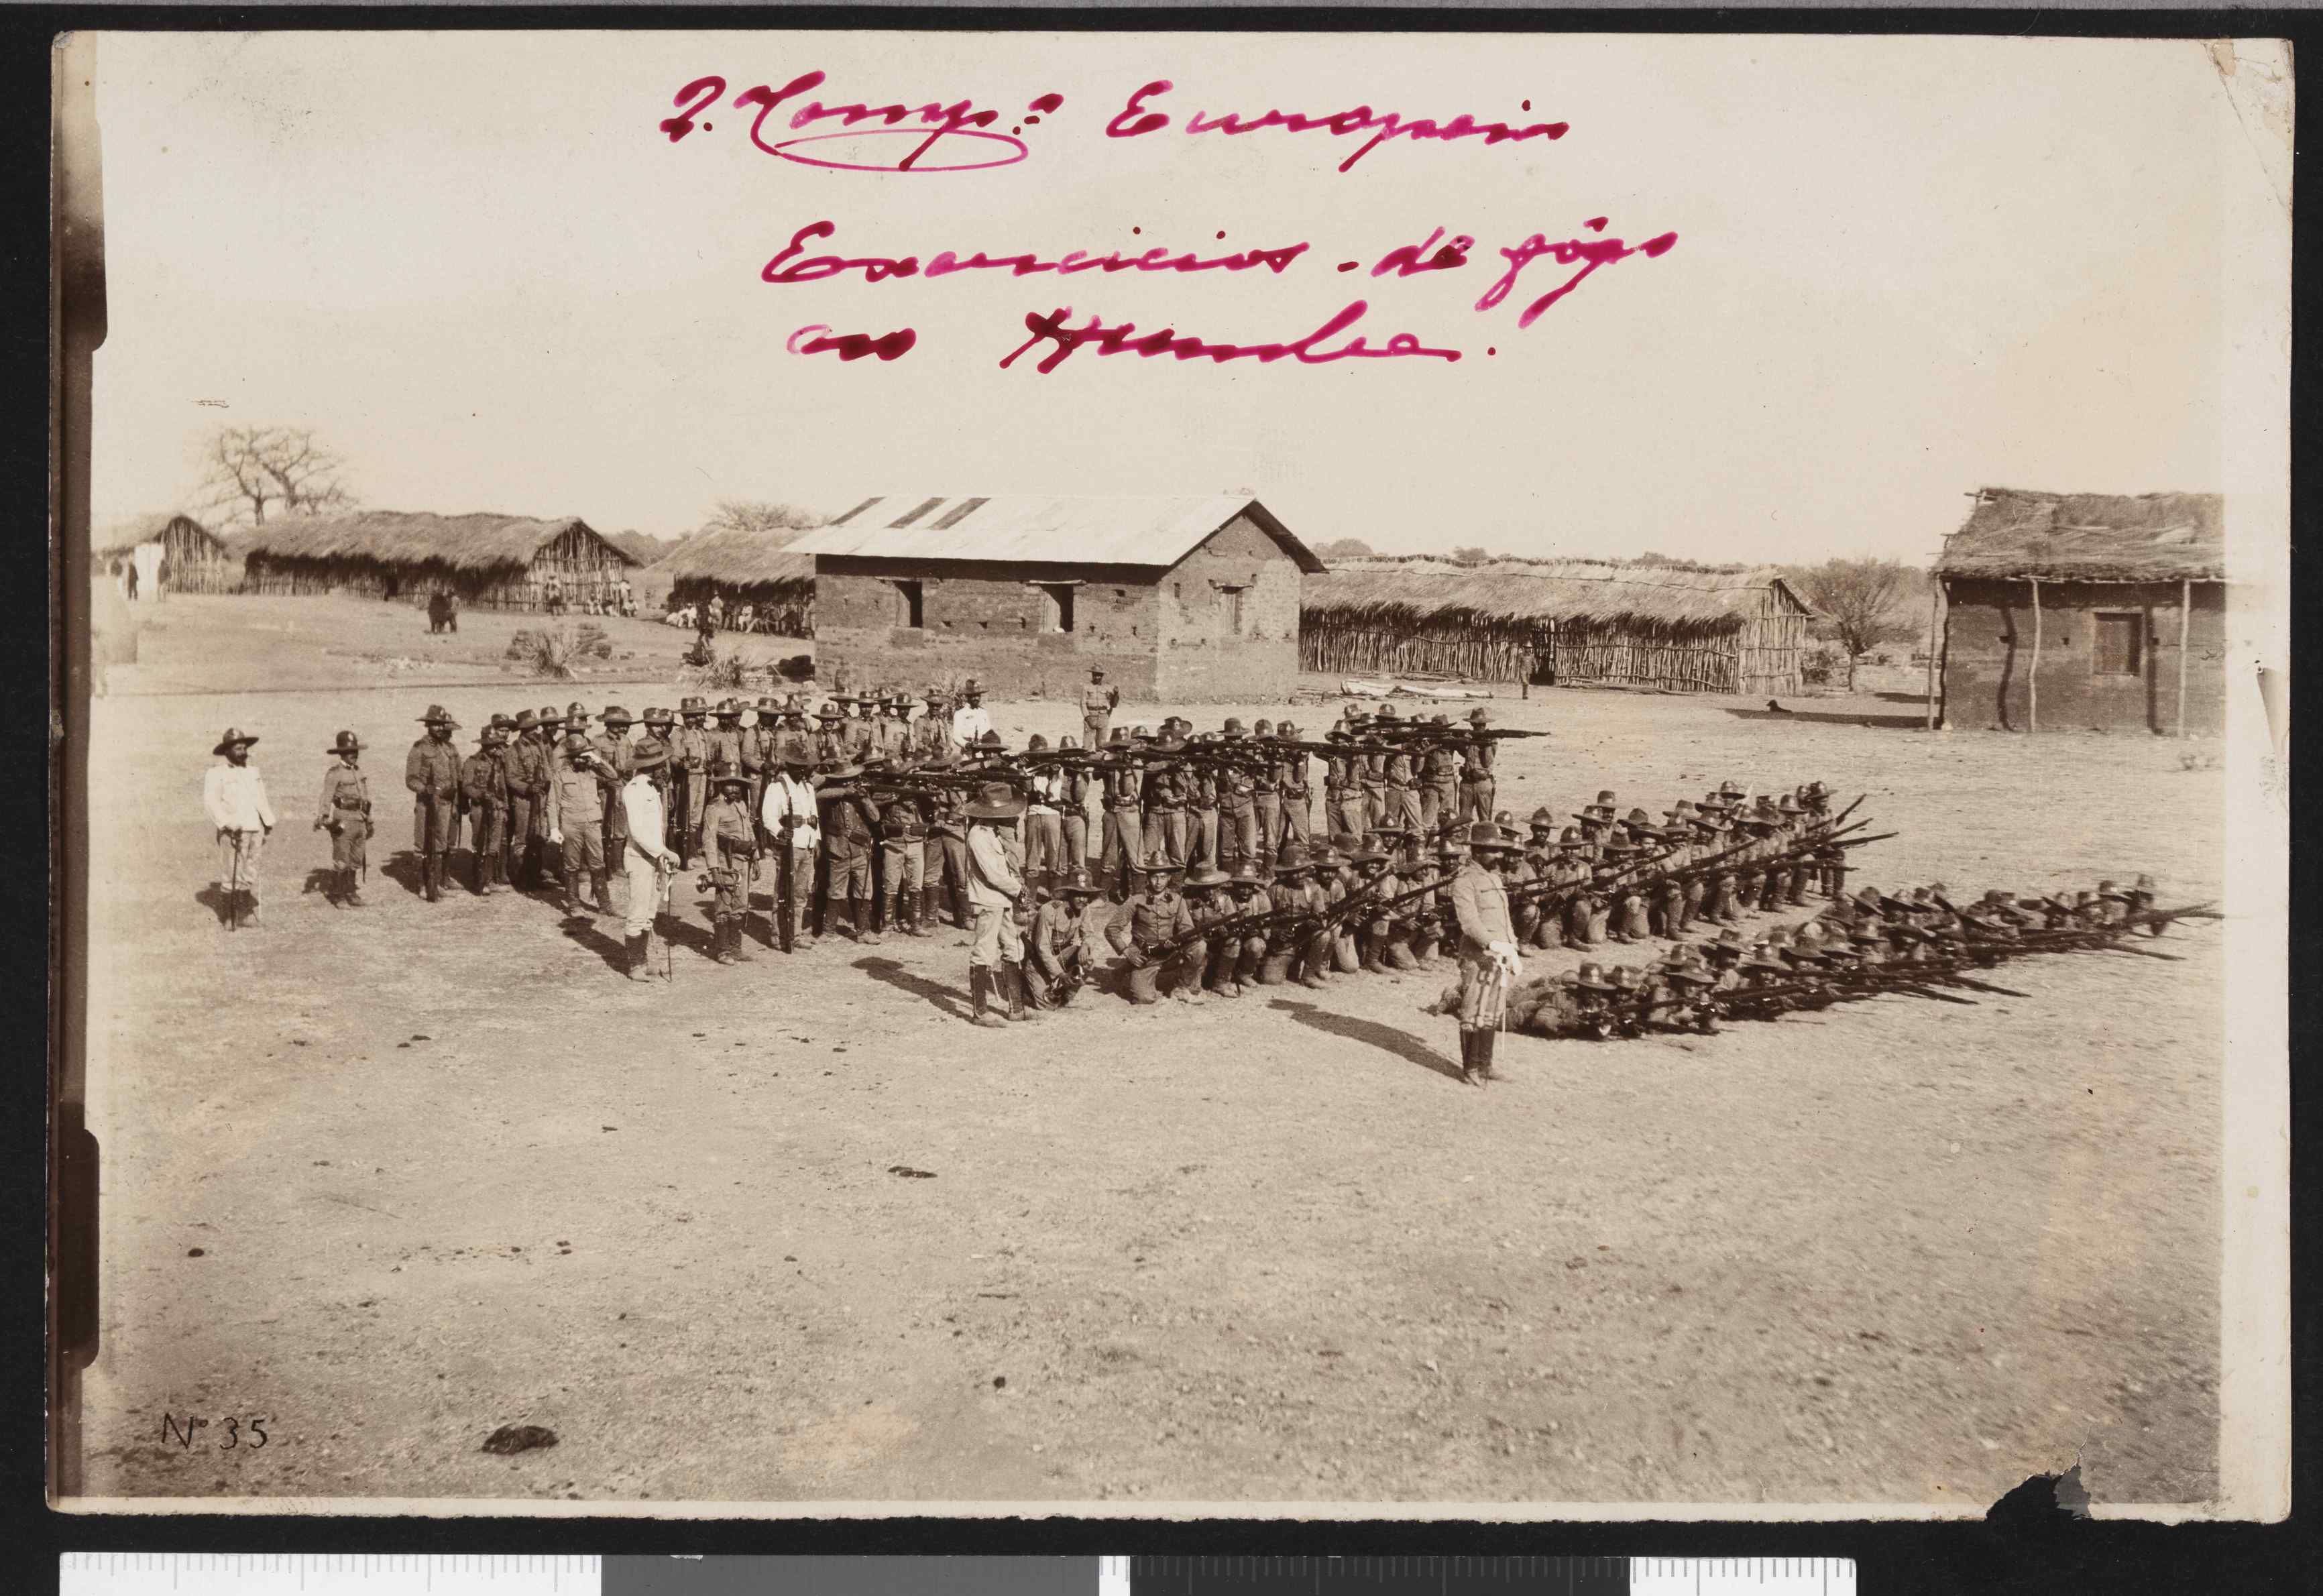 2. Comp.ª Europeia
Exercicios - de fôgo
no Humbe.
Nº 35